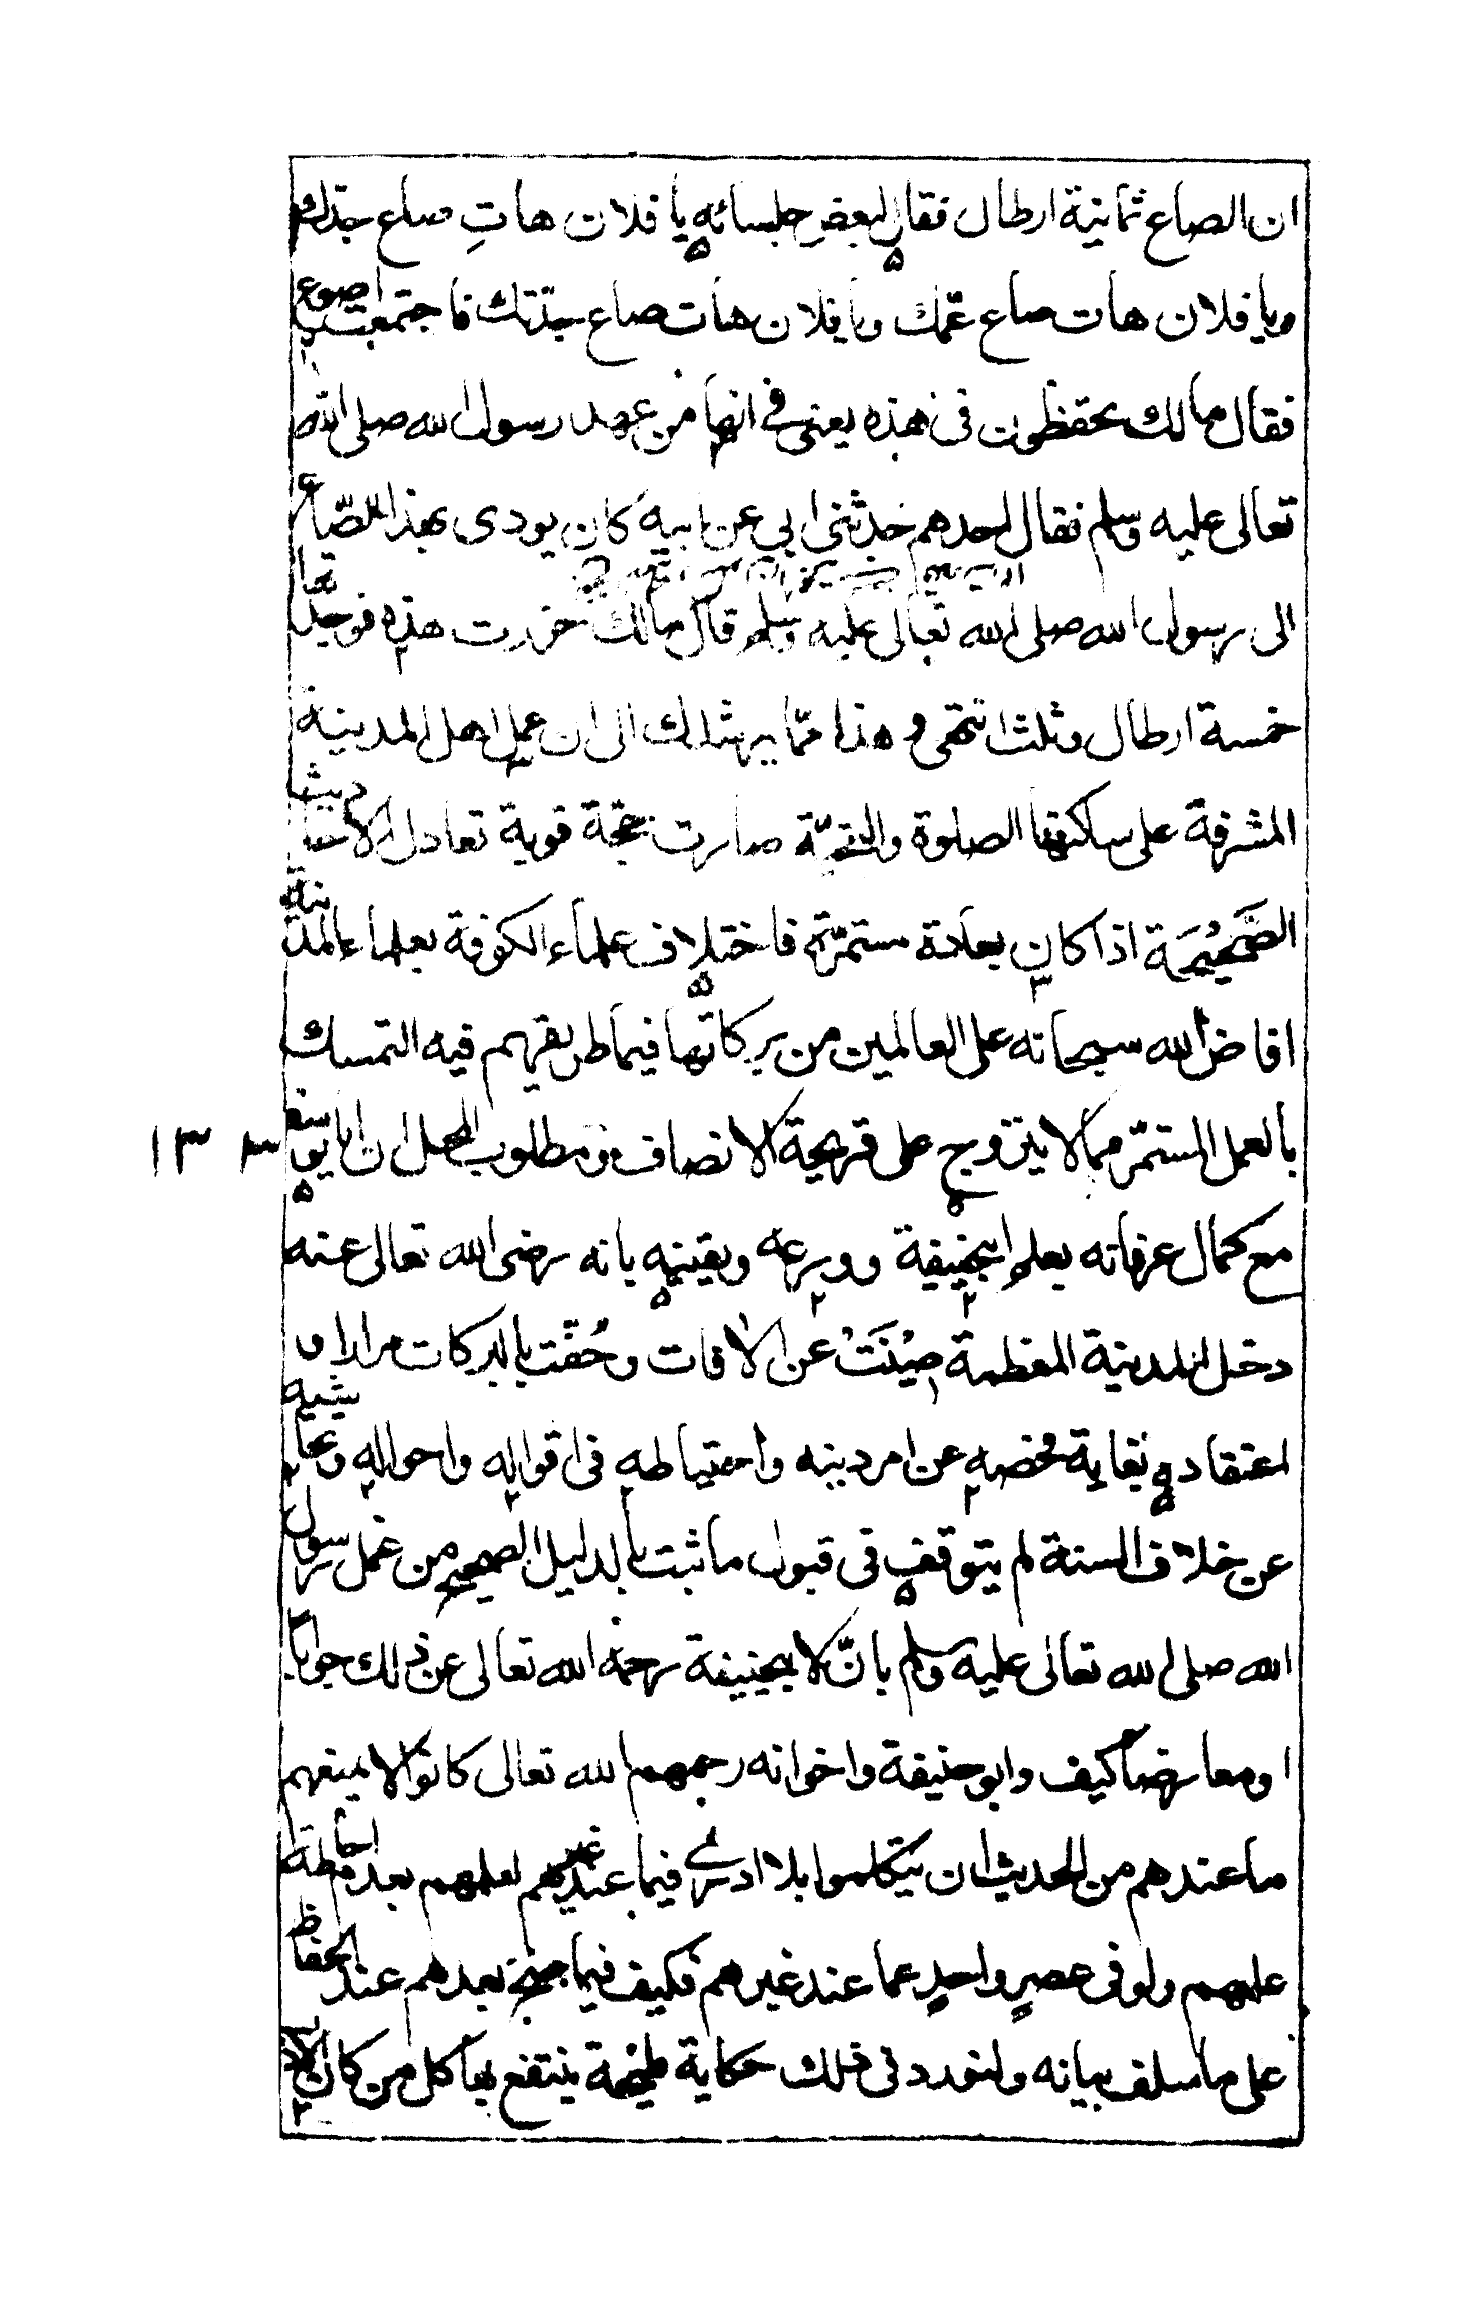 ان الصاع ثمانية ارطال فقال لبعض جلسائه يا فلان هاتِ صاع جدك
ويا فلان هات صاع عمّك ويا فلان هات صاع جدّتك فاجتمعت اصوع
فقال مالك تحفظون فى هذه يعنى فى انها من عهد رسول الله صلى الله
تعالى عليه وسلم فقال احدهم حدثنى ابى عن ابيه كان يودى بهذا الصّاع
الى رسول الله صلى الله تعالى عليه وسلم قال مالك حزرت هذه فوجدتها
خمسة ارطال وثلث انتهى وهذا ممّا يرشدك الى ان عمل اهل المدينة
المشرفة على ساكنها الصلوة والتحيّة صارت حجّة قوية تعادل الاحاديث
الصَّحِيْحَة اذا كان بعادة مستمرّة فاختلاف علماء الكوفة بعلماء المدينة
افاض الله سبحانه على العالمين من بركاتها فيما طريقهم فيه التمسك
بالعمل المستمرّ مما لا يتزوج على قريحة الانصاف ومطلوب المحل ان ابا يوسف
١٣٣
مع كمال عرفانه بعلم ابيحنيفة وورعه ويقينه بانه رضى الله تعالى عنه
دخل المدينة المعظمة صِيْنَتْ عن الافات وحُفّت بالبركات مرارا و
اعتقاده بغاية فحصه عن امر دينه واحتياطه فى اقواله واحواله وتحاشيه
عن خلاف السنة لم يتوقف فى قبول ما ثبت بالدليل الصحيح من عمل رسول
الله صلى الله تعالى عليه وسلم بانّ لابيحنيفة رحمة الله تعالى عن ذلك جوابا
او معارضا كيف وابو حنيفة واخوانه رحمهم الله تعالى كانوا لا يمنعهم
ما عندهم من الحديث ان يتكلموا بلا ادرى فيما عند غيرهم لعلمهم بعدم احاطة
علمهم ولو فى عصرٍ واحدٍ عما عند غيرهم فكيف فيما صحّ بعدهم عند الحفاظ
على ما سلف بيانه ولنورد فى ذلك حكاية ينتفع بها كل من كان